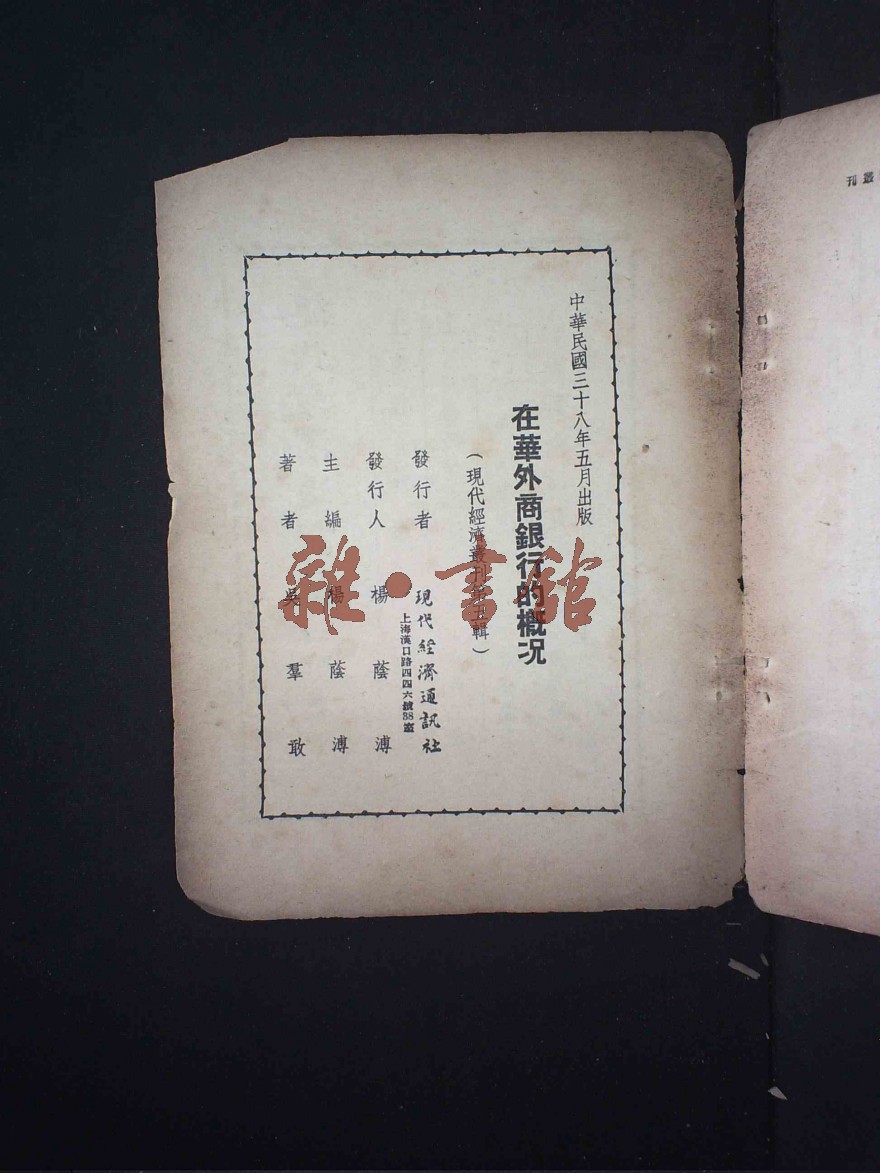 中華民國三十八年五月出版
在華外商銀行的概況
（現代經濟叢刊第五輯）
發行者 現代經濟通訊社
上海漢口路四四六號38室
發行人 楊蔭溥
主編 楊蔭溥
著者 吳羣敢
雜·書館
叢刊